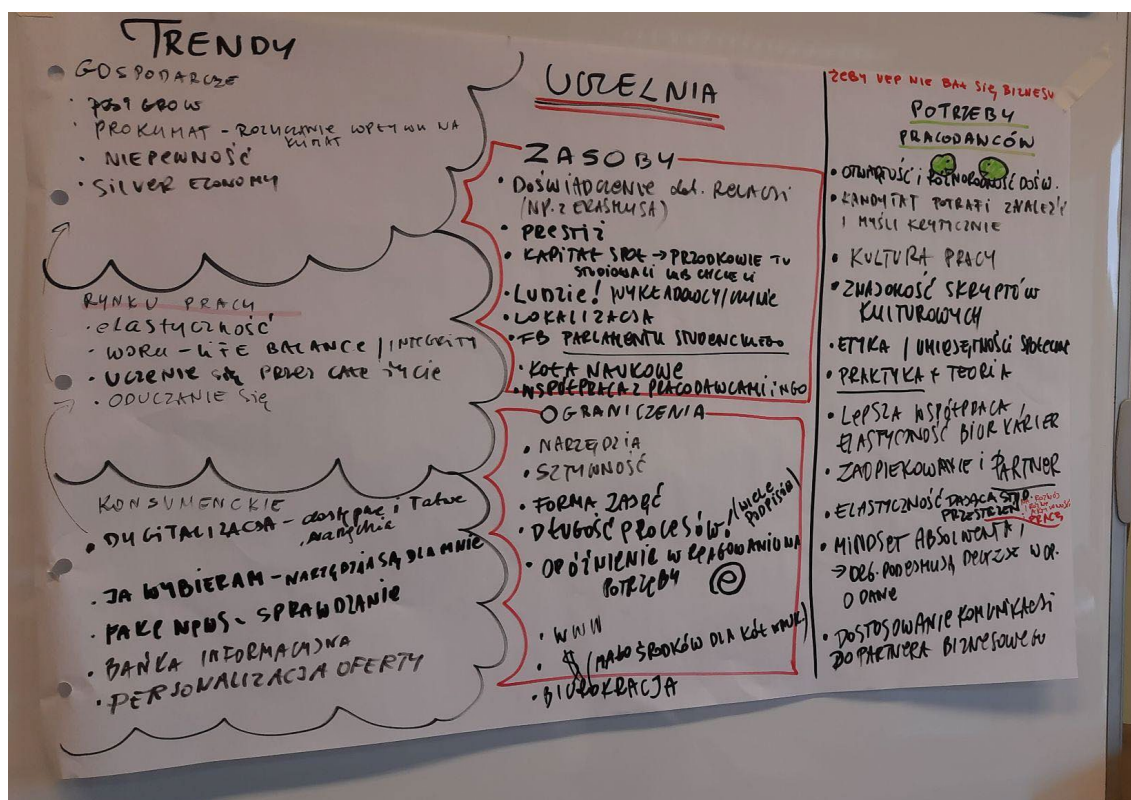 TRENDY
GOSPODARCZE
· POST GROW
· PROKLIMAT - ROZLICZANIE WPŁYWU NA
KLIMAT
· NIEPEWNOŚĆ
· SILVER ECONOMY
RYNKU PRACY
· elASTYCZNOŚĆ
· WORK - LIFE BALANCE / INTEGRITY
· UCZENIE SIĘ PRZEZ CAŁE ŻYCIE
· ODUCZANIE SIĘ
KONSUMENCKIE
· DYGITALIZACJA - dostępne i łatwe
narzędzia
· JA WYBIERAM - NARZĘDZIA SĄ DLA MNIE
· FAKE NEWS - SPRAWDZANIE
· BAŃKA INFORMACYJNA
· PERSONALIZACJA OFERTY
UCZELNIA
ZASOBY
· DOŚWIADCZENIE dot. RELACJI
(NP. Z ERASMUSA)
· PRESTIŻ
· KAPITAŁ SPOŁ → PRZODKOWIE TU
STUDIOWALI LUB CHCIELI
· LUDZIE! WYKŁADOWCY /
· LOKALIZACJA
· FB PARLAMENTU STUDENCKIEGO
· KOŁA NAUKOWE
· WSPÓŁPRACA Z PRACODAWCAMI i NGO
OGRANICZENIA
· NARZĘDZIA
· SZTYWNOŚĆ
· FORMA ZAJĘĆ
· DŁUGOŚĆ PROCESÓW! (WIELE
PODPISÓW)
· OPÓŹNIENIE W REAGOWANIU NA
POTRZEBY
· WWW
· $ (MAŁO ŚRODKÓW DLA KÓŁ NAUK)
· BIUROKRACJA
ŻEBY UEP NIE BAŁ SIĘ BIZNESU
POTRZEBY
PRACODAWCÓW
· OTWARTOŚĆ i RÓŻNORODNOŚĆ DOŚW.
· KANDYDAT POTRAFI ZNALEŹĆ
I MYŚLI KRYTYCZNIE
· KULTURA PRACY
· ZNAJOMOŚĆ SKRYPTÓW
KULTUROWYCH
· ETYKA / UMIEJĘTNOŚCI SPOŁECZNE
· PRAKTYKA + TEORIA
· LEPSZA WSPÓŁPRACA /
ELASTYCZNOŚĆ BIUR KARIER
· ZAOPIEKOWANIE i PARTNER
· ELASTYCZNOŚĆ DAJĄCA STUD.
PRZESTRZEŃ
PRACĘ
· MINDSET ABSOLWENTA /
→ PODEJMUJĄ DECYZJE W OP.
O DANE
· DOSTOSOWANIE KOMUNIKACJI
DO PARTNERA BIZNESOWEGO